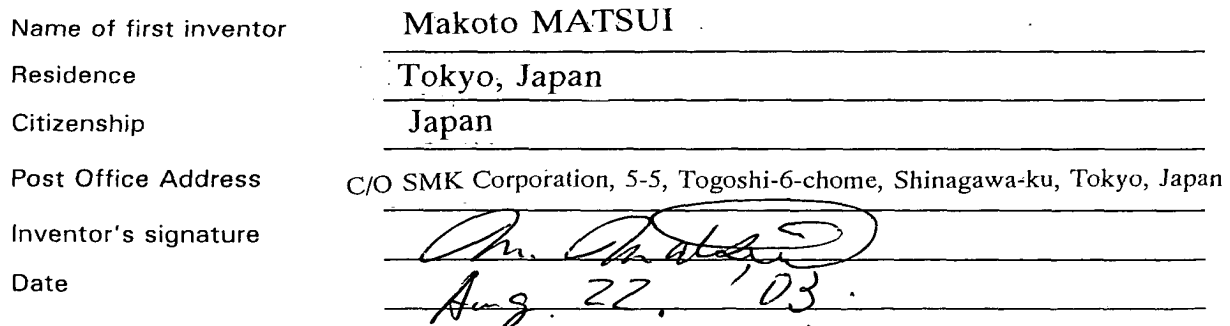 Name of first inventor Makoto MATSUI
Residence Tokyo, Japan
Citizenship Japan
Post Office Address C/O SMK Corporation, 5-5, Togoshi-6-chome, Shinagawa-ku, Tokyo, Japan
Inventor's signature M. Matsui
Date Aug. 22, '03.